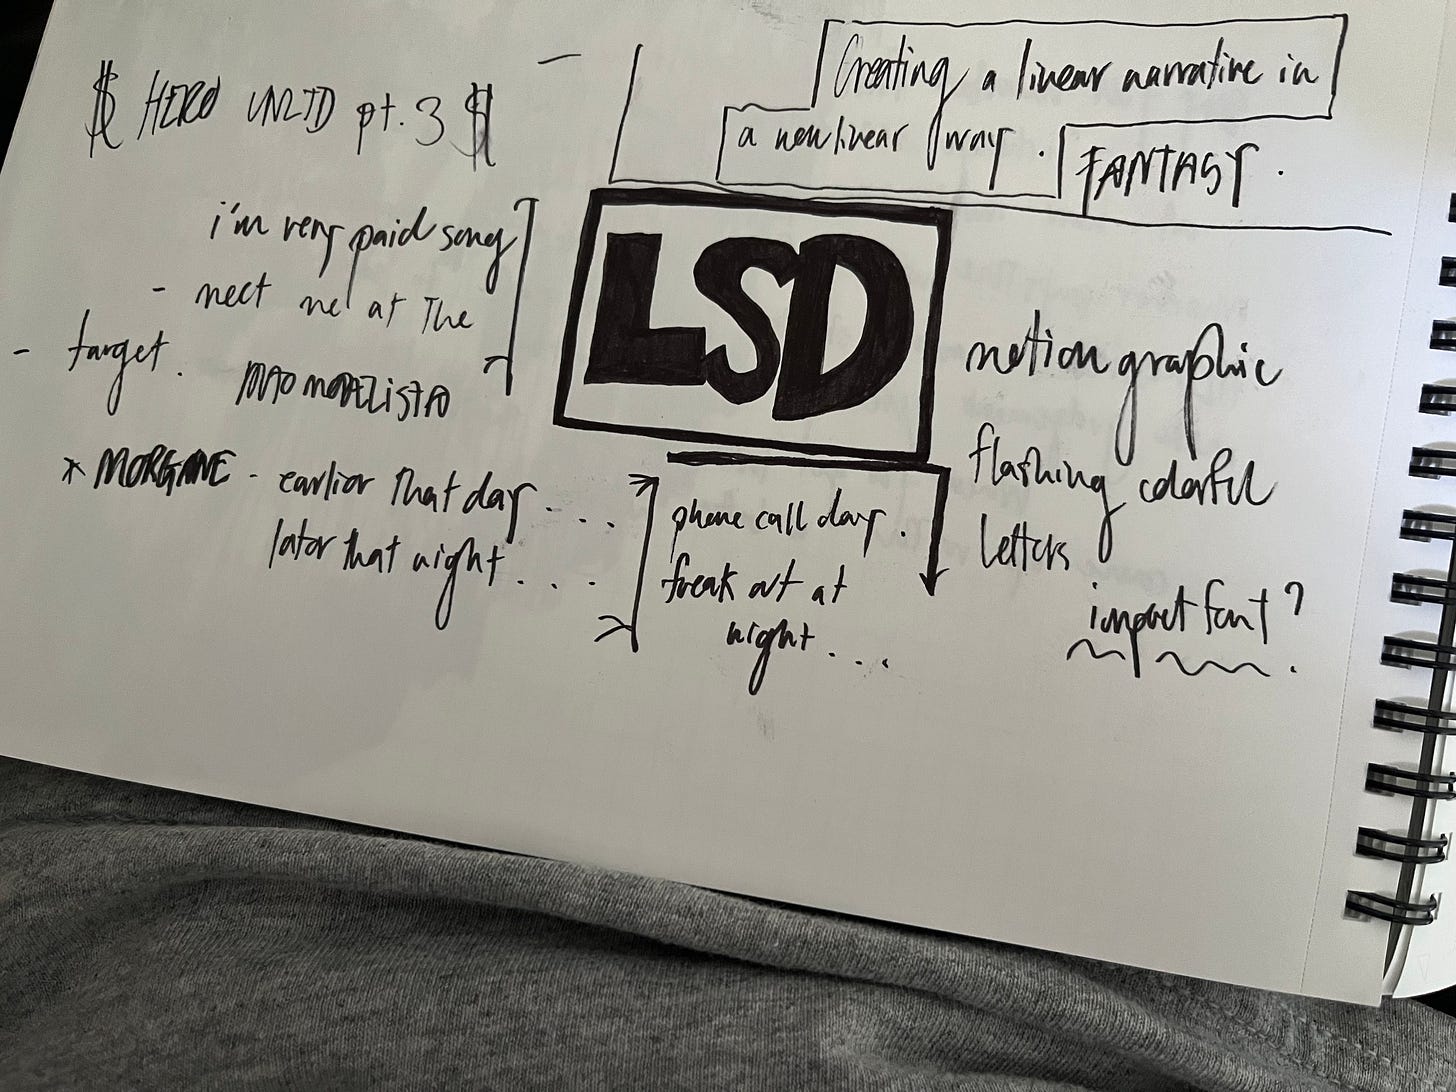 $ HERO UNLTD pt. 3 $
i'm very paid song
- meet me at the
- target.
* MORGANE - earlier that day . . . .
later that night . . . .
Creating a linear narrative in
a nonlinear way.
FANTASY.
LSD
phone call day.
freak out at
night . . .
motion graphic
flashing colorful
letters
impact font?